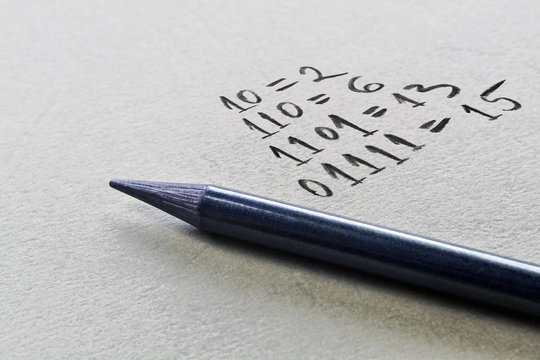 10=2
110=6
1101=13
01111=15